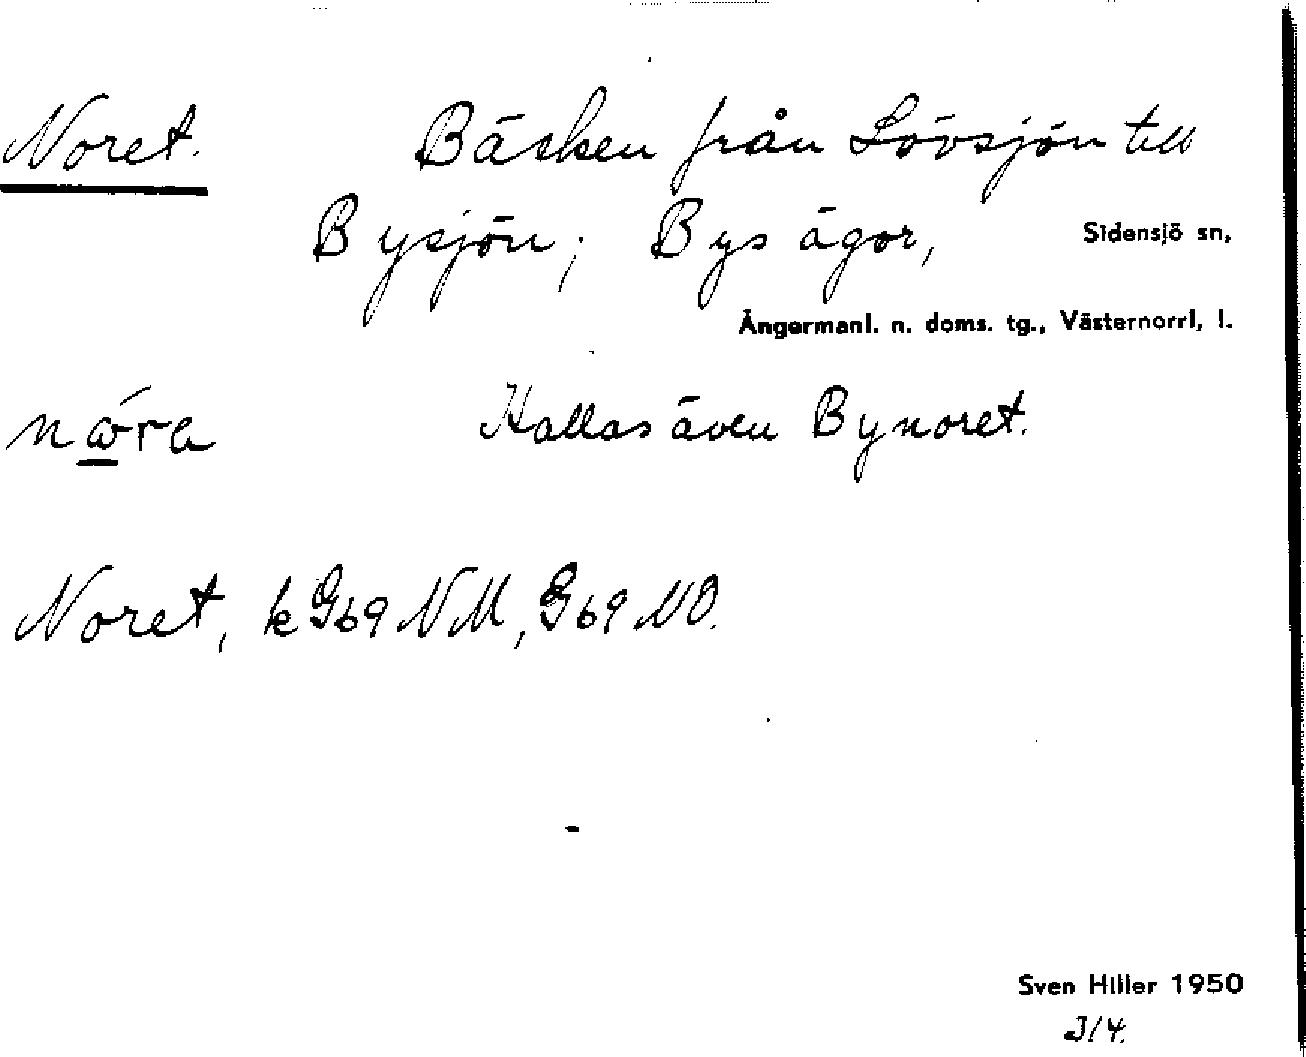 Noret. Bäcken från Lövsjön till
Bysjön; Bys ägor, Sidensjö sn,
Ångermanl. n. doms. tg., Västernorrl, l.
Kallas även Bynoret.
Noret, k G69 NM, G69 NO.
Sven Hiller 1950
J/4.